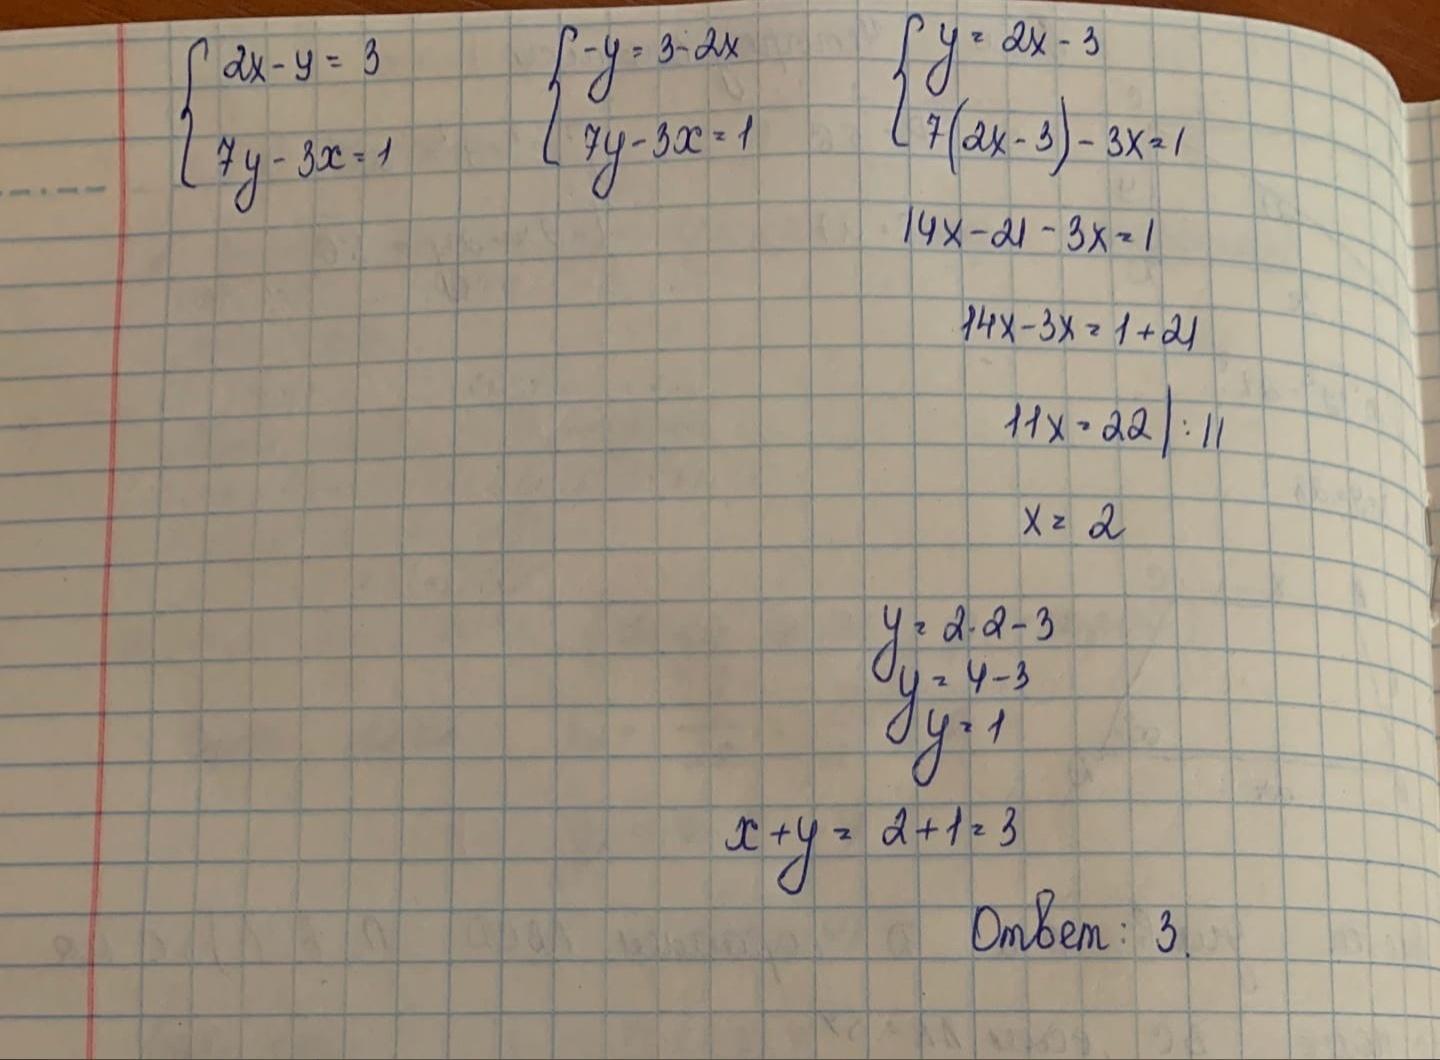 2x - y = 3
7y - 3x = 1
-y = 3 - 2x
7y - 3x = 1
y = 2x - 3
7(2x - 3) - 3x = 1
14x - 21 - 3x = 1
14x - 3x = 1 + 21
11x = 22 | : 11
x = 2
y = 2 · 2 - 3
y = 4 - 3
y = 1
x + y = 2 + 1 = 3
Ответ: 3.